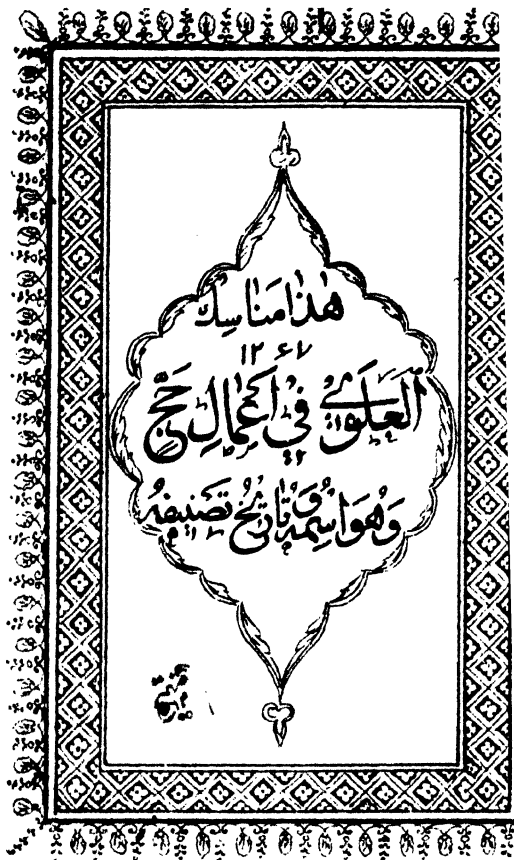 هٰذا مَناسِك
۱۲۶۷
العَلَوِي فِي اَعمالِ حَجّ
وَهُوَ اسمُهُ وَتاريخُ تَصنيفِهُ